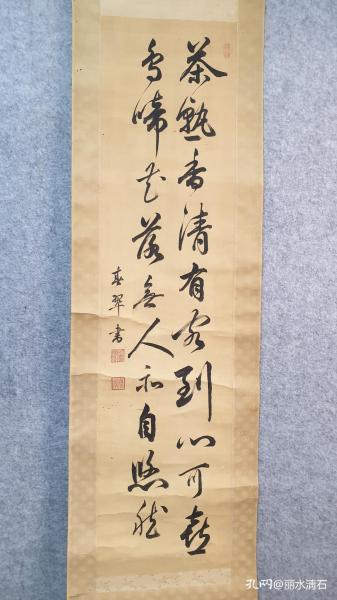 茶熟香清有客到門可喜
鳥啼花落無人亦自悠然
春翠書
孔网@丽水清石